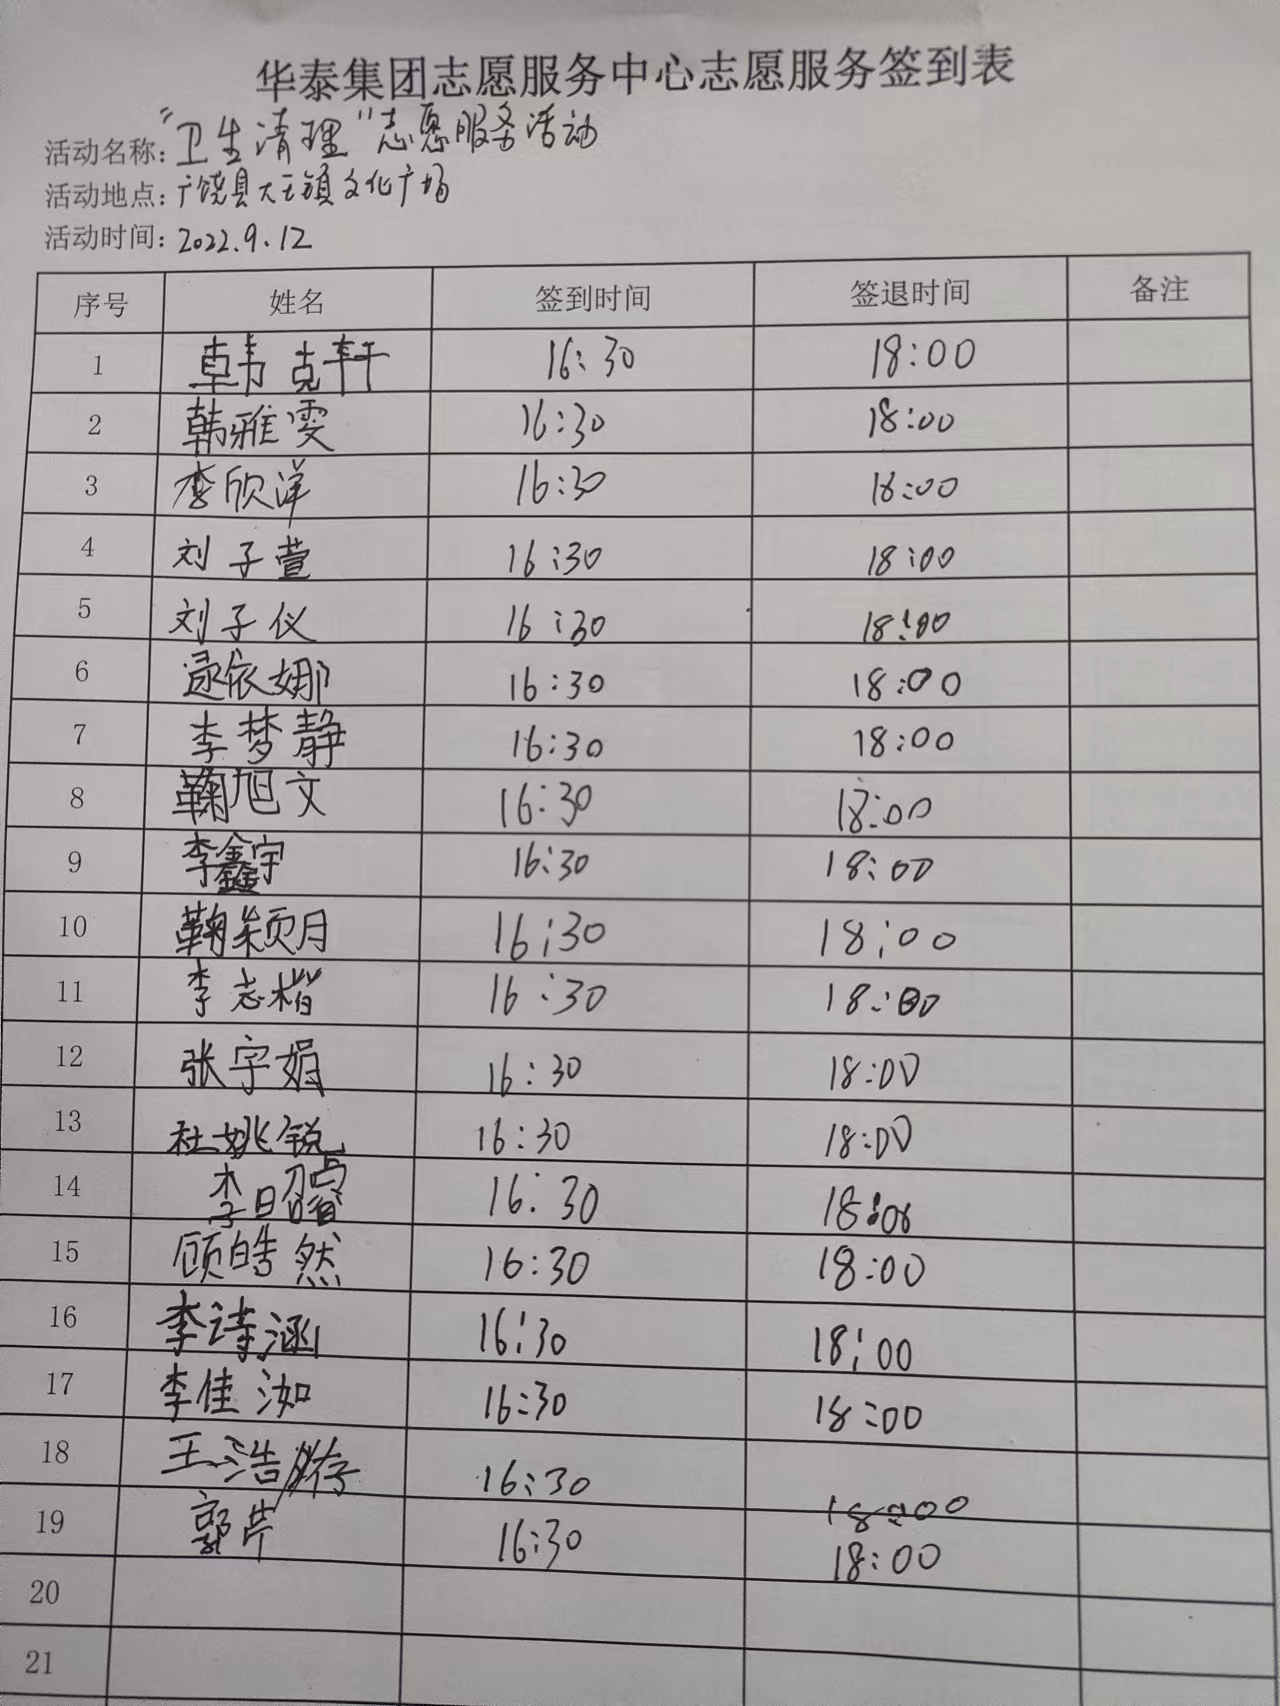 华泰集团志愿服务中心志愿服务签到表
活动名称：“卫生清理”志愿服务活动
活动地点：广饶县大王镇文化广场
活动时间：2022.9.12
序号 姓名 签到时间 签退时间 备注
1 韩克轩 16:30 18:00
2 韩雅雯 16:30 18:00
3 李欣洋 16:30 18:00
4 刘子萱 16:30 18:00
5 刘子仪 16:30 18:00
6 逯依娜 16:30 18:00
7 李梦静 16:30 18:00
8 鞠旭文 16:30 18:00
9 李鑫宇 16:30 18:00
10 鞠颖月 16:30 18:00
11 李志楷 16:30 18:00
12 张宇娟 16:30 18:00
13 杜姚锐 16:30 18:00
14 16:30 18:00
15 顾皓然 16:30 18:00
16 李诗涵 16:30 18:00
17 李佳洳 16:30 18:00
18 王浩 16:30 18:00
19 郭芹 16:30 18:00
20
21